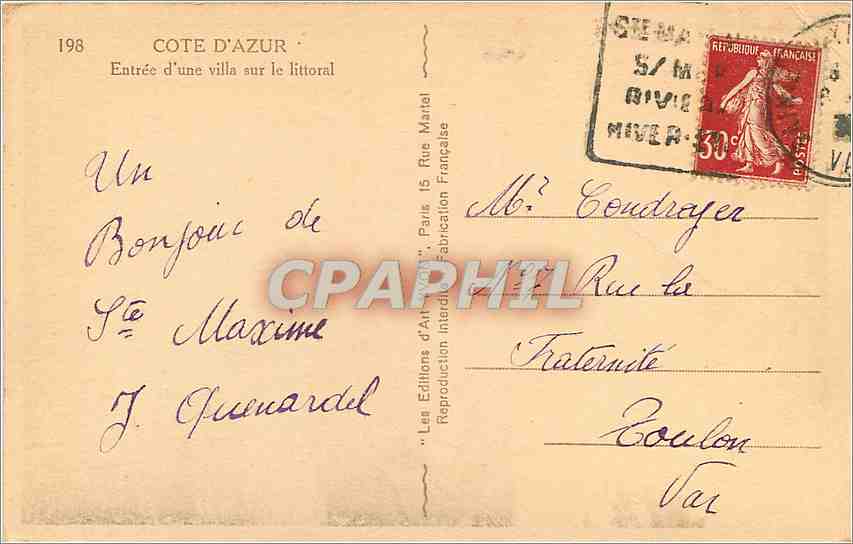 198 COTE D'AZUR
Entrée d'une villa sur le littoral
Un
Bonjour de
Ste Maxime
J. Quenardel
"Les Editions d'Art "YVON", Paris 15 Rue Martel
Reproduction Interdite Fabrication Française
CPAPHIL
STE MA
S/ M
RIVIE
HIVER
REPUBLIQUE FRANÇAISE
30c
POSTES
Mr Condroyer
Rue la
Fraternité
Toulon
Var